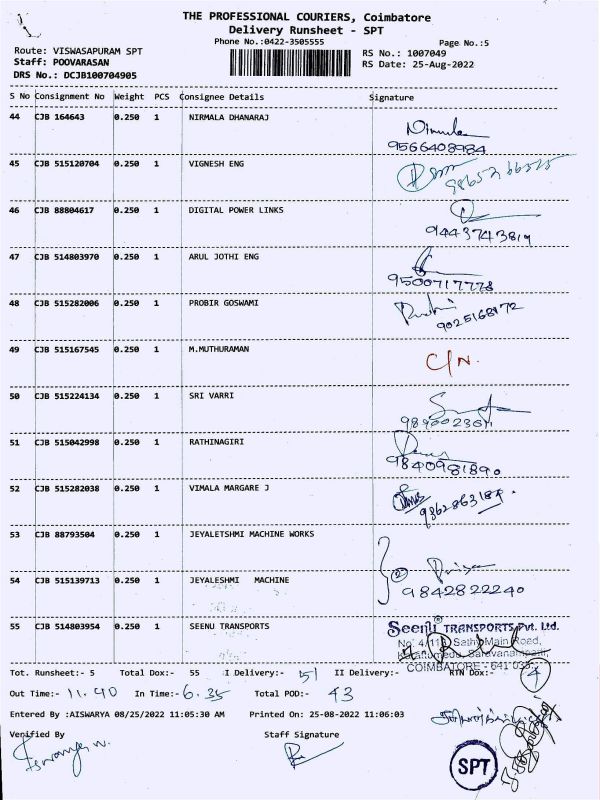 THE PROFESSIONAL COURIERS, Coimbatore
Delivery Runsheet - SPT
Phone No.:0422-3505555
Page No.:5
Route: VISWASAPURAM SPT
RS No.: 1007049
Staff: POOVARASAN
RS Date: 25-Aug-2022
DRS No.: DCJB100704905
S No Consignment No Weight PCS Consignee Details Signature
44 CJB 164643 0.250 1 NIRMALA DHANARAJ
9566408984
45 CJB 515120704 0.250 1 VIGNESH ENG
46 CJB 88804617 0.250 1 DIGITAL POWER LINKS
9443743819
47 CJB 514803970 0.250 1 ARUL JOTHI ENG
9500717778
48 CJB 515282006 0.250 1 PROBIR GOSWAMI
9025168172
49 CJB 515167545 0.250 1 M.MUTHURAMAN C/N.
50 CJB 515224134 0.250 1 SRI VARRI
51 CJB 515042998 0.250 1 RATHINAGIRI
9840981890
52 CJB 515282038 0.250 1 VIMALA MARGARE J
9862863184.
53 CJB 88793504 0.250 1 JEYALETSHMI MACHINE WORKS
54 CJB 515139713 0.250 1 JEYALESHMI MACHINE
2
9842822240
55 CJB 514803954 0.250 1 SEENU TRANSPORTS
TRANSPORTS Pvt. Ltd.
Road,
COIMBATORE - 641 035
Tot. Runsheet:- 5 Total Dox:- 55 I Delivery:- 51 II Delivery:- RTN Dox:- 4
Out Time:- 11.40 In Time:- 6.35 Total POD:- 43
Entered By :AISWARYA 08/25/2022 11:05:30 AM Printed On: 25-08-2022 11:06:03
Verified By Staff Signature
SPT